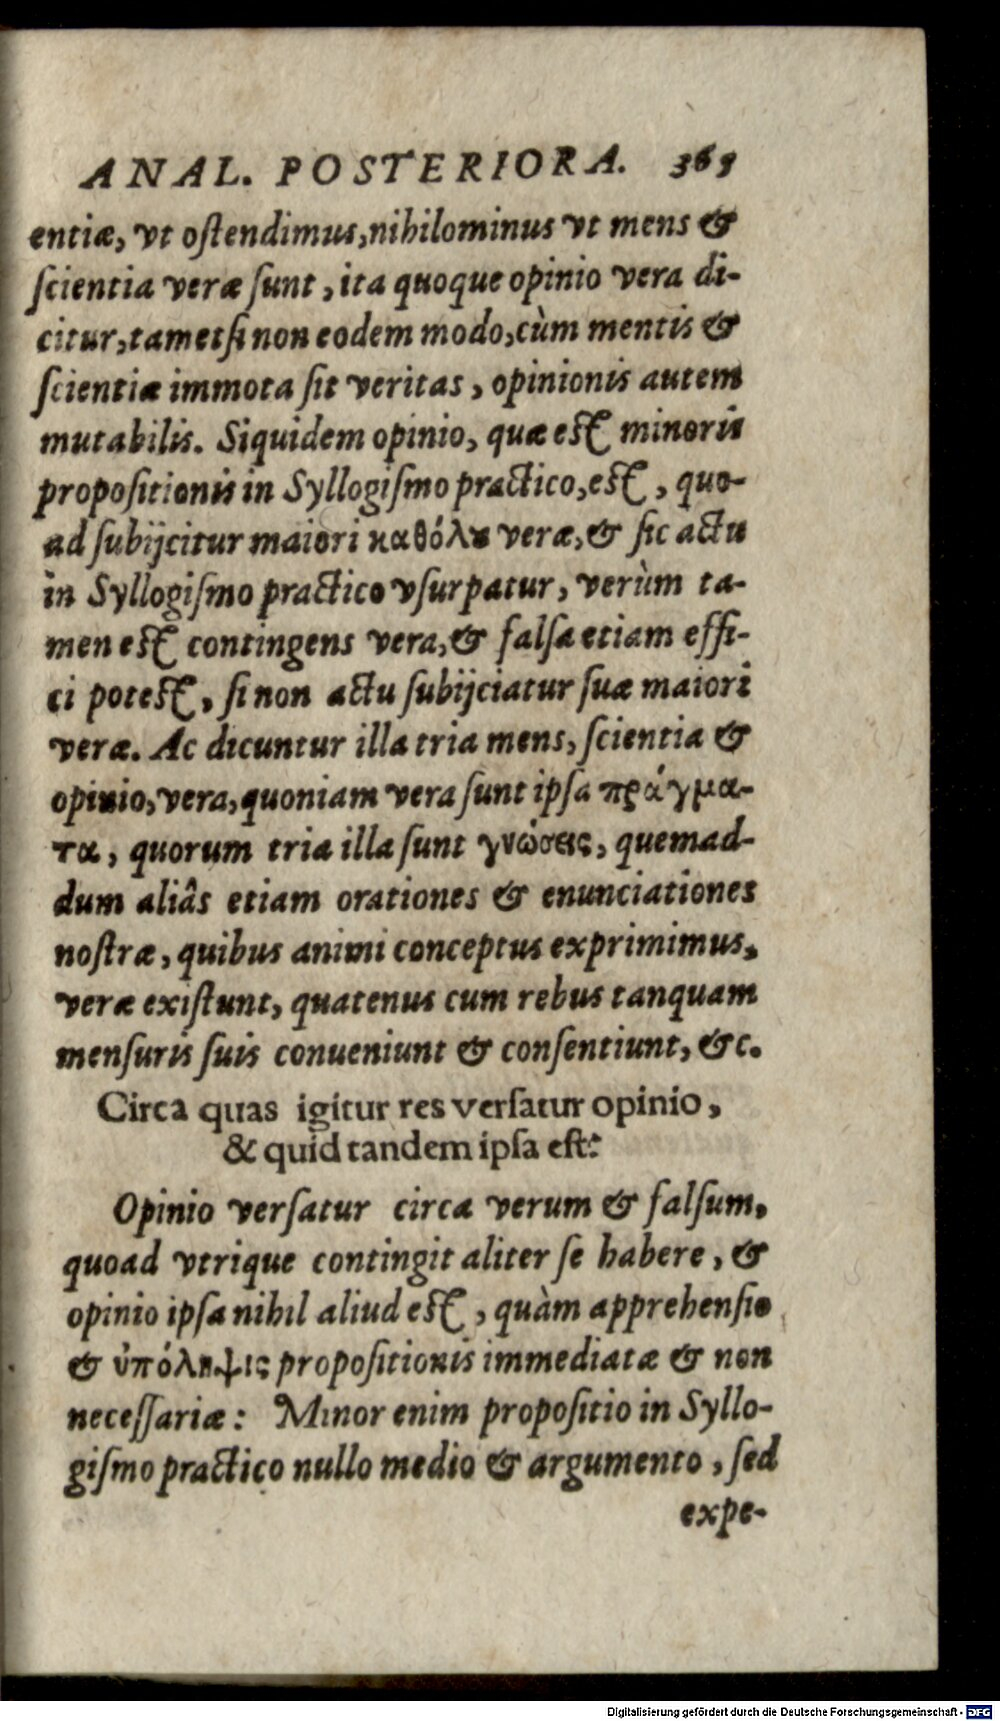 ANAL. POSTERIORA. 365
entiæ, vt oſtendimus, nihilominus vt mens &
ſcientia veræ ſunt, ita quoque opinio vera di-
citur, tametſi non eodem modo, cùm mentis &
ſcientiæ immota ſit veritas, opinionis autem
mutabilis. Siquidem opinio, quæ eſt minoris
propoſitionis in Syllogiſmo practico, eſt, quo-
ad ſubijcitur maiori καθόλȣ veræ, & ſic actu
in Syllogiſmo practico vſurpatur, verùm ta-
men eſt contingens vera, & falſa etiam effi-
ci poteſt, ſi non actu ſubijciatur ſuæ maiori
veræ. Ac dicuntur illa tria mens, ſcientia &
opinio, vera, quoniam vera ſunt ipſa πράγμα-
τα, quorum tria illa ſunt γνώσεις, quemad-
dum aliâs etiam orationes & enunciationes
noſtræ, quibus animi conceptus exprimimus,
veræ exiſtunt, quatenus cum rebus tanquam
menſuris ſuis conueniunt & conſentiunt, &c.
Circa quas igitur res verſatur opinio,
& quid tandem ipſa eſt?
Opinio verſatur circa verum & falſum,
quoad vtrique contingit aliter ſe habere, &
opinio ipſa nihil aliud eſt, quàm apprehenſio
& ὑπόληψις propoſitionis immediatæ & non
neceſſariæ: Minor enim propoſitio in Syllo-
giſmo practico nullo medio & argumento, ſed
expe-
Digitalisierung gefördert durch die Deutsche Forschungsgemeinschaft - DFG